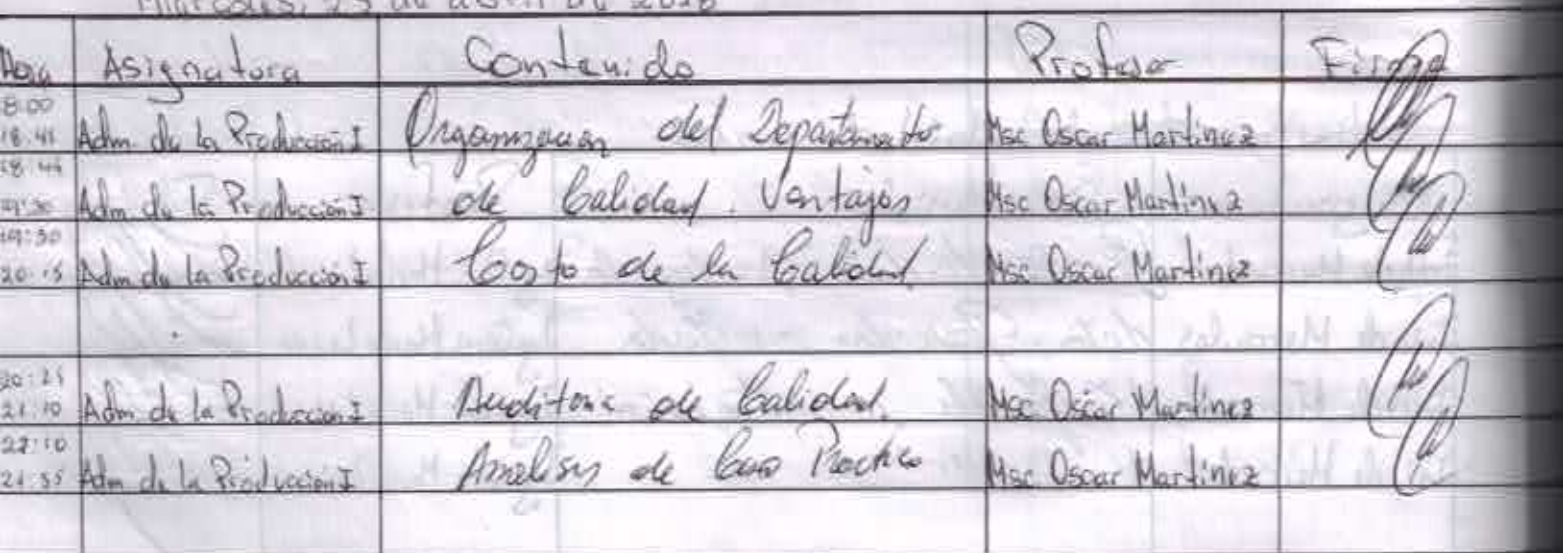 Miércoles, 25 de abril de 2018
Hora Asignatura Contenido Profesor Firma
18:00
18:45 Adm. de la Producción I Organización del Departamento Msc Oscar Martínez
18:45
19:30 Adm. de la Producción I de Calidad. Ventajas Msc Oscar Martínez
19:30
20:15 Adm de la Producción I Costo de la Calidad Msc Oscar Martínez
20:25
21:10 Adm. de la Produccion I Auditoria de Calidad. Msc Oscar Martínez
21:10
21:55 Adm de la Producción I Analisis de Caso Practico Msc Oscar Martínez